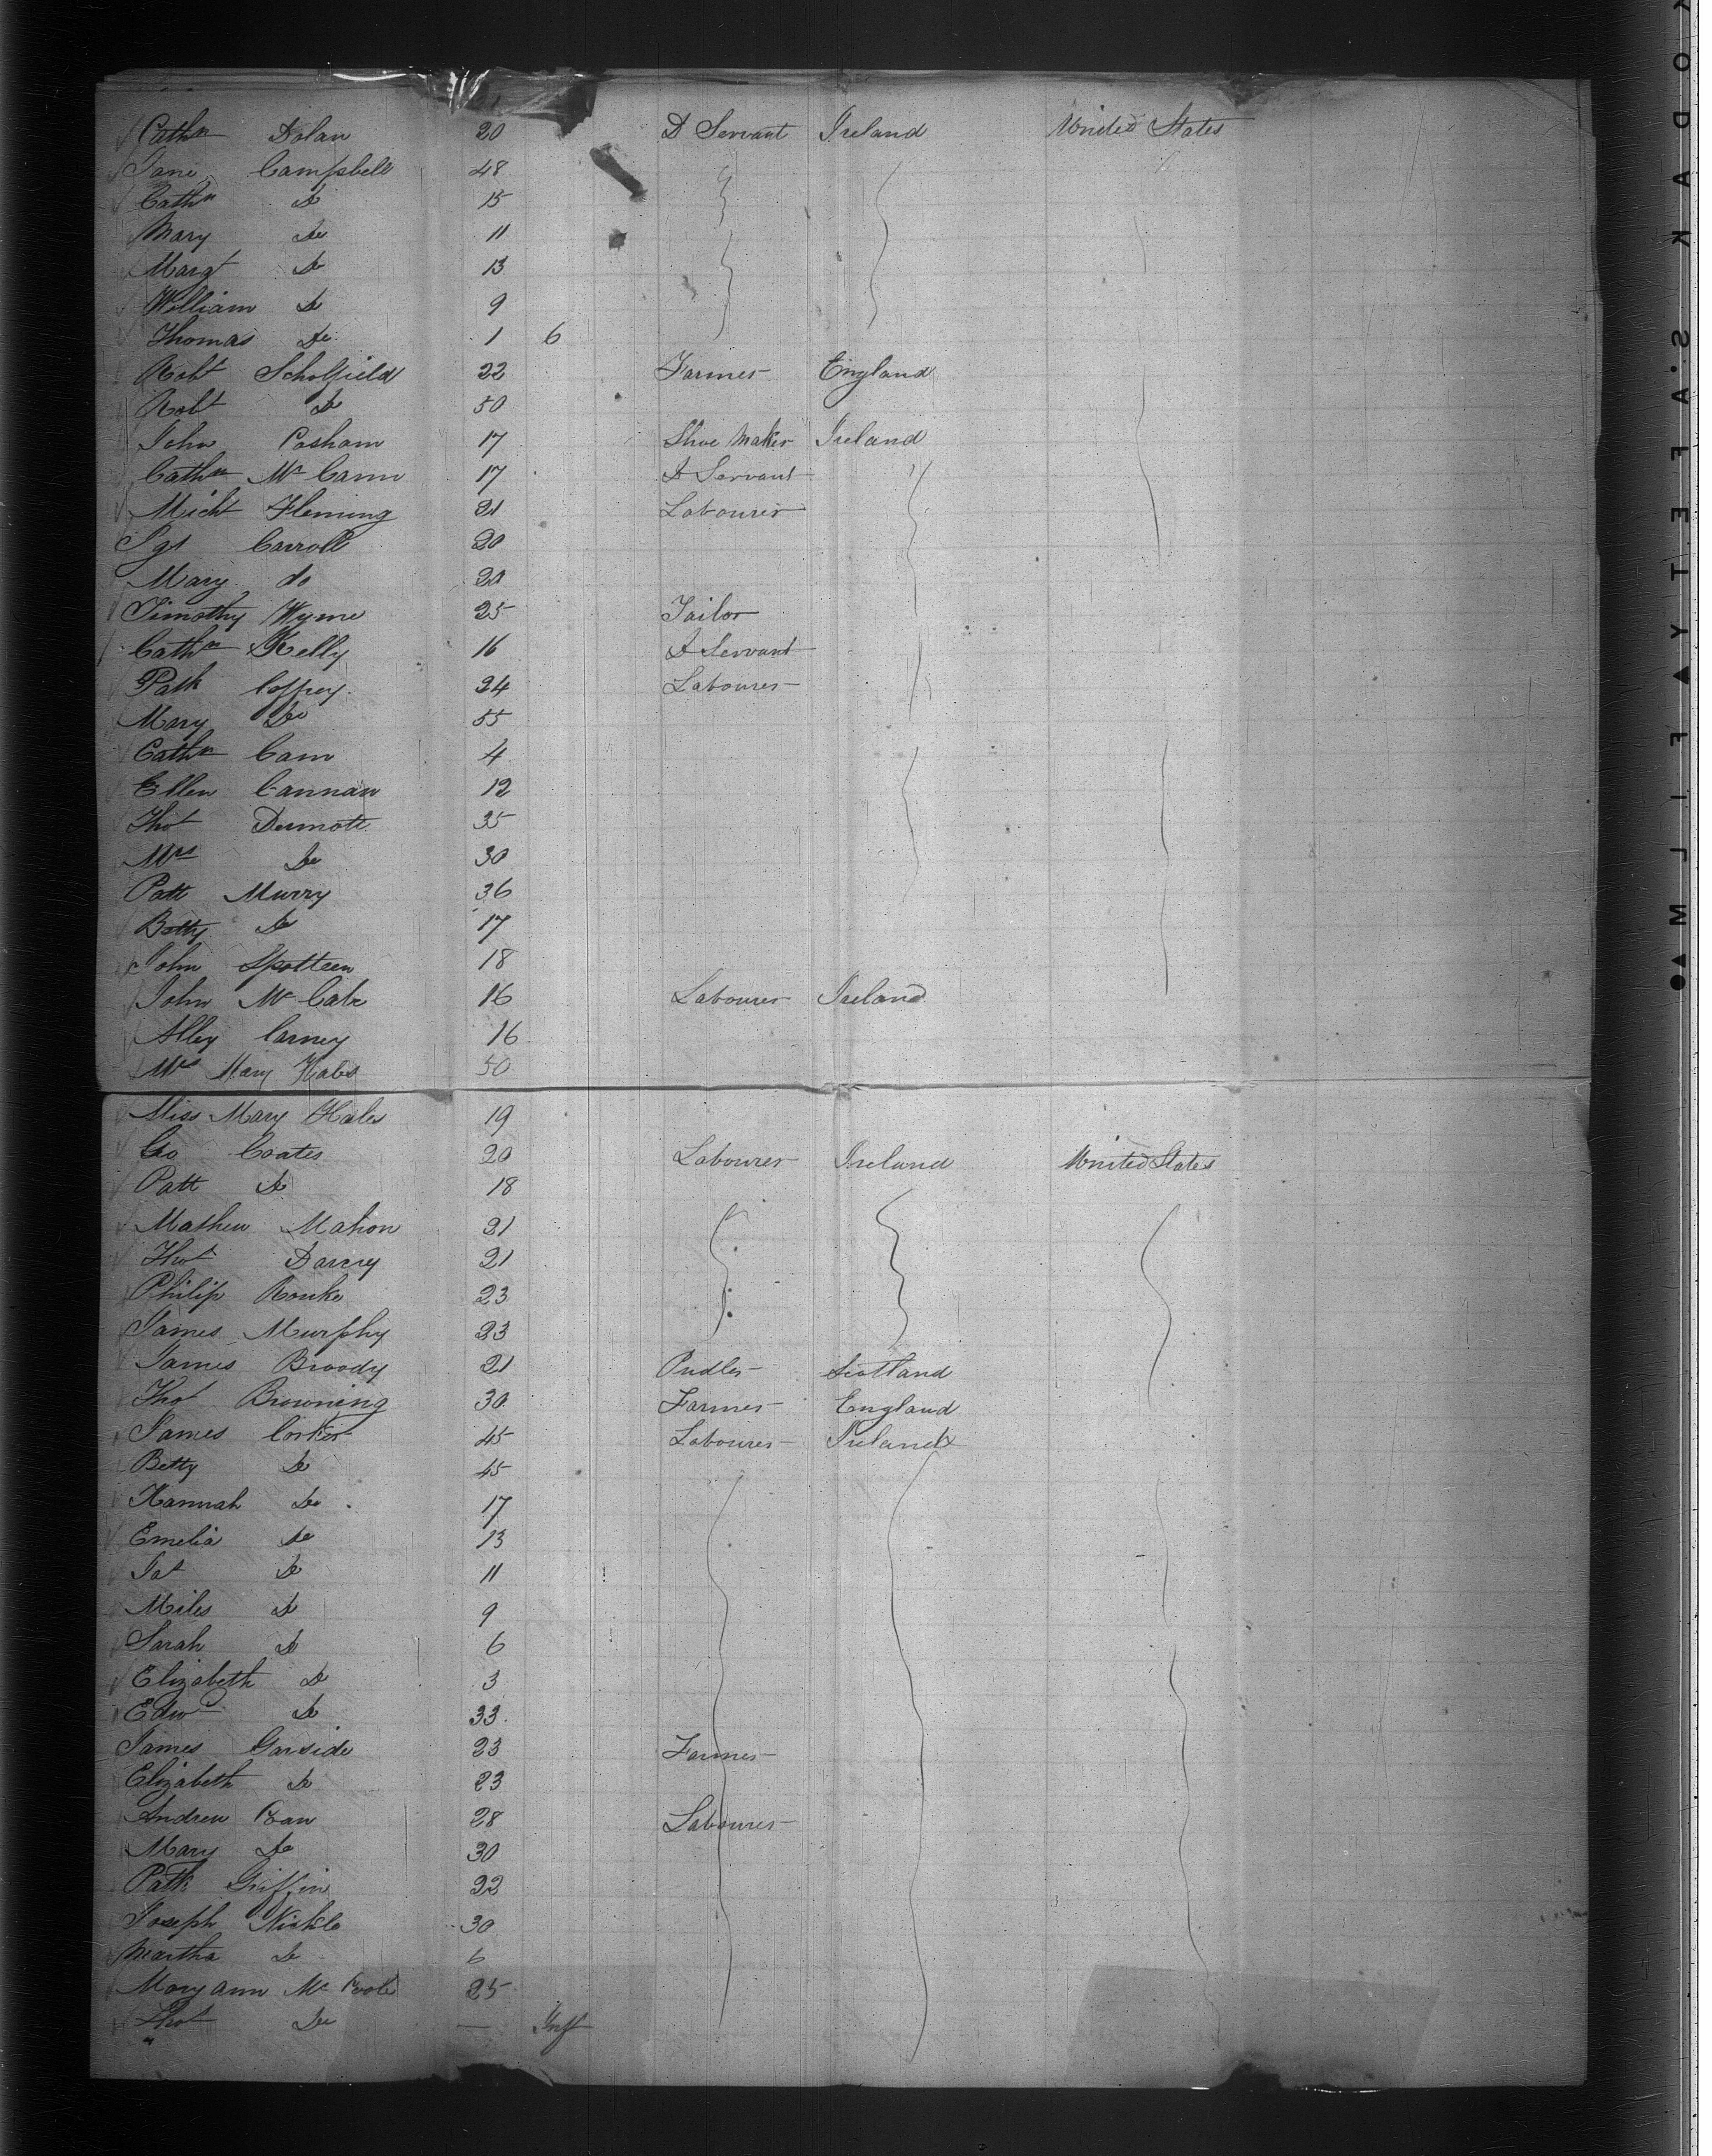 Cathn Dolan 20 D Servant Ireland United States
Jane Campbell 48
Cathn Do 15
Mary Do 11
Margt Do 13
William Do 9
Thomas Do 1 6
Robt Scholfield 22 Farmer England
Robt Do 50
John Cosham 17 Shoe Maker Ireland
Cathn Mc Cann 17 D Servant
Michl Fleming 21 Labourer
Carroll 20
Mary do 20
Timothy Wynne 25 Tailor
Cathn Kelly 16 D Servant
Patk Coffrey 24 Labourer
Mary Do 55
Cathn Cain 4
Ellen Cannan 12
Thos Dermott 35
Mrs Do 30
Patt Murry 36
Betty Do 17
John Spotteen 18
John Mc Cabe 16 Labourer Ireland
Alley Carney 16
Mrs Mary Hales 50
Miss Mary Hales 19
Geo Coates 20 Labourer Ireland United States
Patt Do 18
Mathew Mahon 21
Thos Darcey 21
Philip Rourke 23
James Murphy 23
James Broody 21 Pudler Scotland
Thos Browning 30 Farmer England
James Corker 45 Labourer Ireland
Betty Do 45
Hannah Do 17
Emelia Do 13
Do 11
Miles Do 9
Sarah Do 6
Elizabeth Do 3
Edwd Do 33
James Garside 23 Farmer
Elizabeth Do 23
Andrew 28 Labourer
Mary Do 30
Patk Griffin 22
Joseph Nickle 30
Martha Do 6
Mary Ann Mc 25
Thos Do — Inft
KODAK S.AFETY FILM